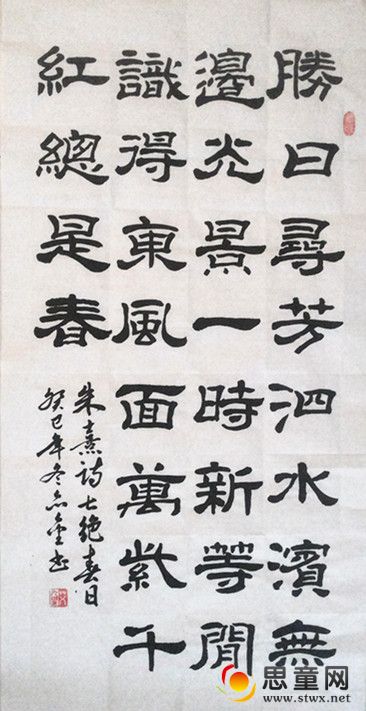 勝日尋芳泗水濱無
邊光景一時新等閒
識得東風面萬紫千
紅總是春
朱熹诗七绝春日
癸巳年冬
思童网
www.stwx.net